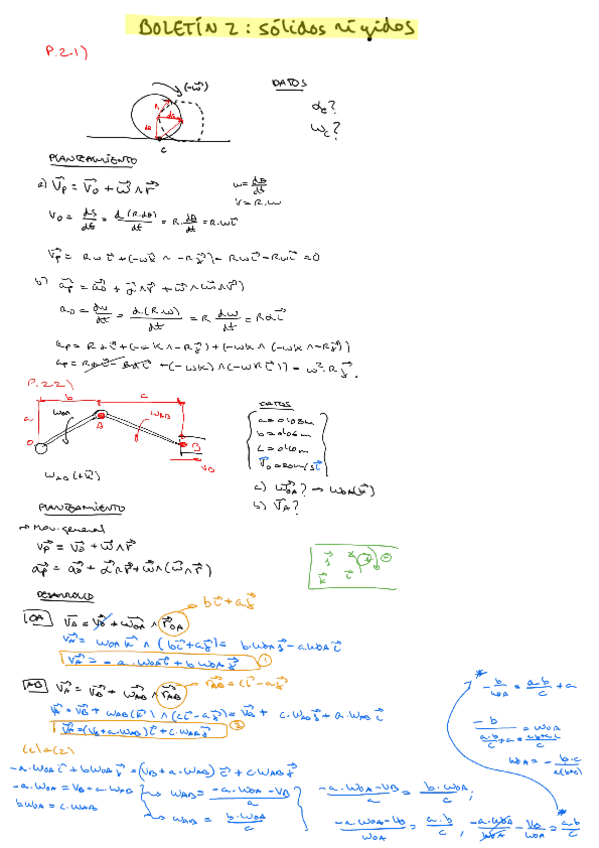 BOLETÍN 2: sólidos rígidos
P.2.1)
(-ω⃗)
DATOS
αc?
ωc?
C
PLANTEAMIENTO
a) V⃗p = V⃗o + ω⃗ ∧ r⃗
ω = dθ/dt
V = R·ω
Vo = ds/dt = d(R·dθ)/dt = R·dθ/dt = R·ω i⃗
V⃗p = Rω i⃗ + (-ωk⃗ ∧ -R j⃗) = Rω i⃗ - Rω i⃗ = 0
b) a⃗p = a⃗o + α⃗ ∧ r⃗ + ω⃗ ∧ (ω⃗ ∧ r⃗)
= d(R·ω)/dt = R dω/dt = Rα i⃗
ap = Rα i⃗ + (-αk ∧ -R j⃗) + (-ωk ∧ (-ωk ∧ -R j⃗))
= ω²·R j⃗.
P.2.2)
b
c
a
ωOA
ωAB
O
B
VB
DATOS
a = 0'08m
b = 0'06m
c =
a) ω⃗OA? → ωOA(k⃗)
b) V⃗A?
PLANTEAMIENTO
→ Mov. general
V⃗p = V⃗o + ω⃗ ∧ r⃗
a⃗p = a⃗o + α⃗ ∧ r⃗ + ω⃗ ∧ (ω⃗ ∧ r⃗)
DESARROLLO
b i⃗ + a j⃗
OA V⃗A = V⃗o + ω⃗OA ∧ r⃗OA
V⃗A = ωOA k⃗ ∧ (b i⃗ + a j⃗) = b·ωOA j⃗ - a·ωOA i⃗
V⃗A = -a·ωOA i⃗ + b ωOA j⃗ (1)
AB V⃗A = V⃗B + ω⃗AB ∧ r⃗AB
V⃗A = V⃗B + ωAB(k⃗) ∧ (c i⃗ - a j⃗) = V⃗B + c·ωAB j⃗ + a·ωAB i⃗
V⃗A = (VB + a·ωAB) i⃗ + c·ωAB j⃗ (2)
(1) = (2)
-a·ωOA i⃗ + b ωOA j⃗ = (VB + a·ωAB) i⃗ + c·ωAB j⃗
ωAB = (-a·ωOA - VB)/a
b ωOA = c·ωAB
ωAB = b·ωOA/c
(-a·ωOA - VB)/a = b·ωOA/c ;
(-a·ωOA - VB)/ωOA = a·b/c ; -a·ωOA/ωOA - VB/ωOA = a·b/c
= a·b/c + a
= ωOA